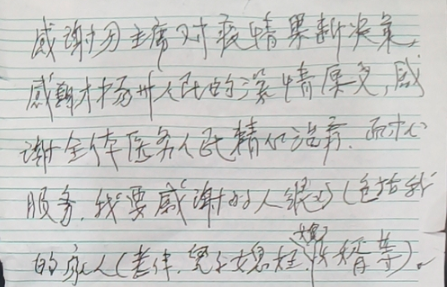 感谢习主席对疫情果断决策,
感谢扬州人民的深情厚义,感
谢全体医务人民精心治养.耐心
服务.我要感谢的人很多(包括我
的家人(老伴.儿子媳妇.女婿等)。